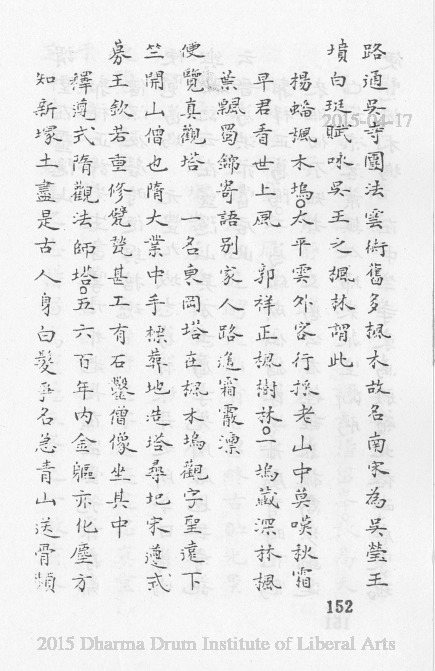 路通吳寺園法雲術舊多楓木故名南宋為吳瑩王
墳白珽賦咏吳王之楓林謂此
楊蟠楓木塢。太平雲外客行採老山中莫唉秋霜
早君看世上風 郭祥正楓樹林。一塢藏深林楓
葉飄蜀錦寄語別家人路遙霜霰凜
便覽真觀塔 一名東岡塔在楓木塢觀字聖達下
竺開山僧也隋大業中手標葬地造塔尋圮宋遵式
募王欽若重修甃甚工有石鑿僧像坐其中
釋遵式隋觀法師塔。五六百年內金軀亦化塵方
知新塚土盡是古人身白髮爭名急青山送骨頻
152
2015-04-17
2015 Dharma Drum Institute of Liberal Arts